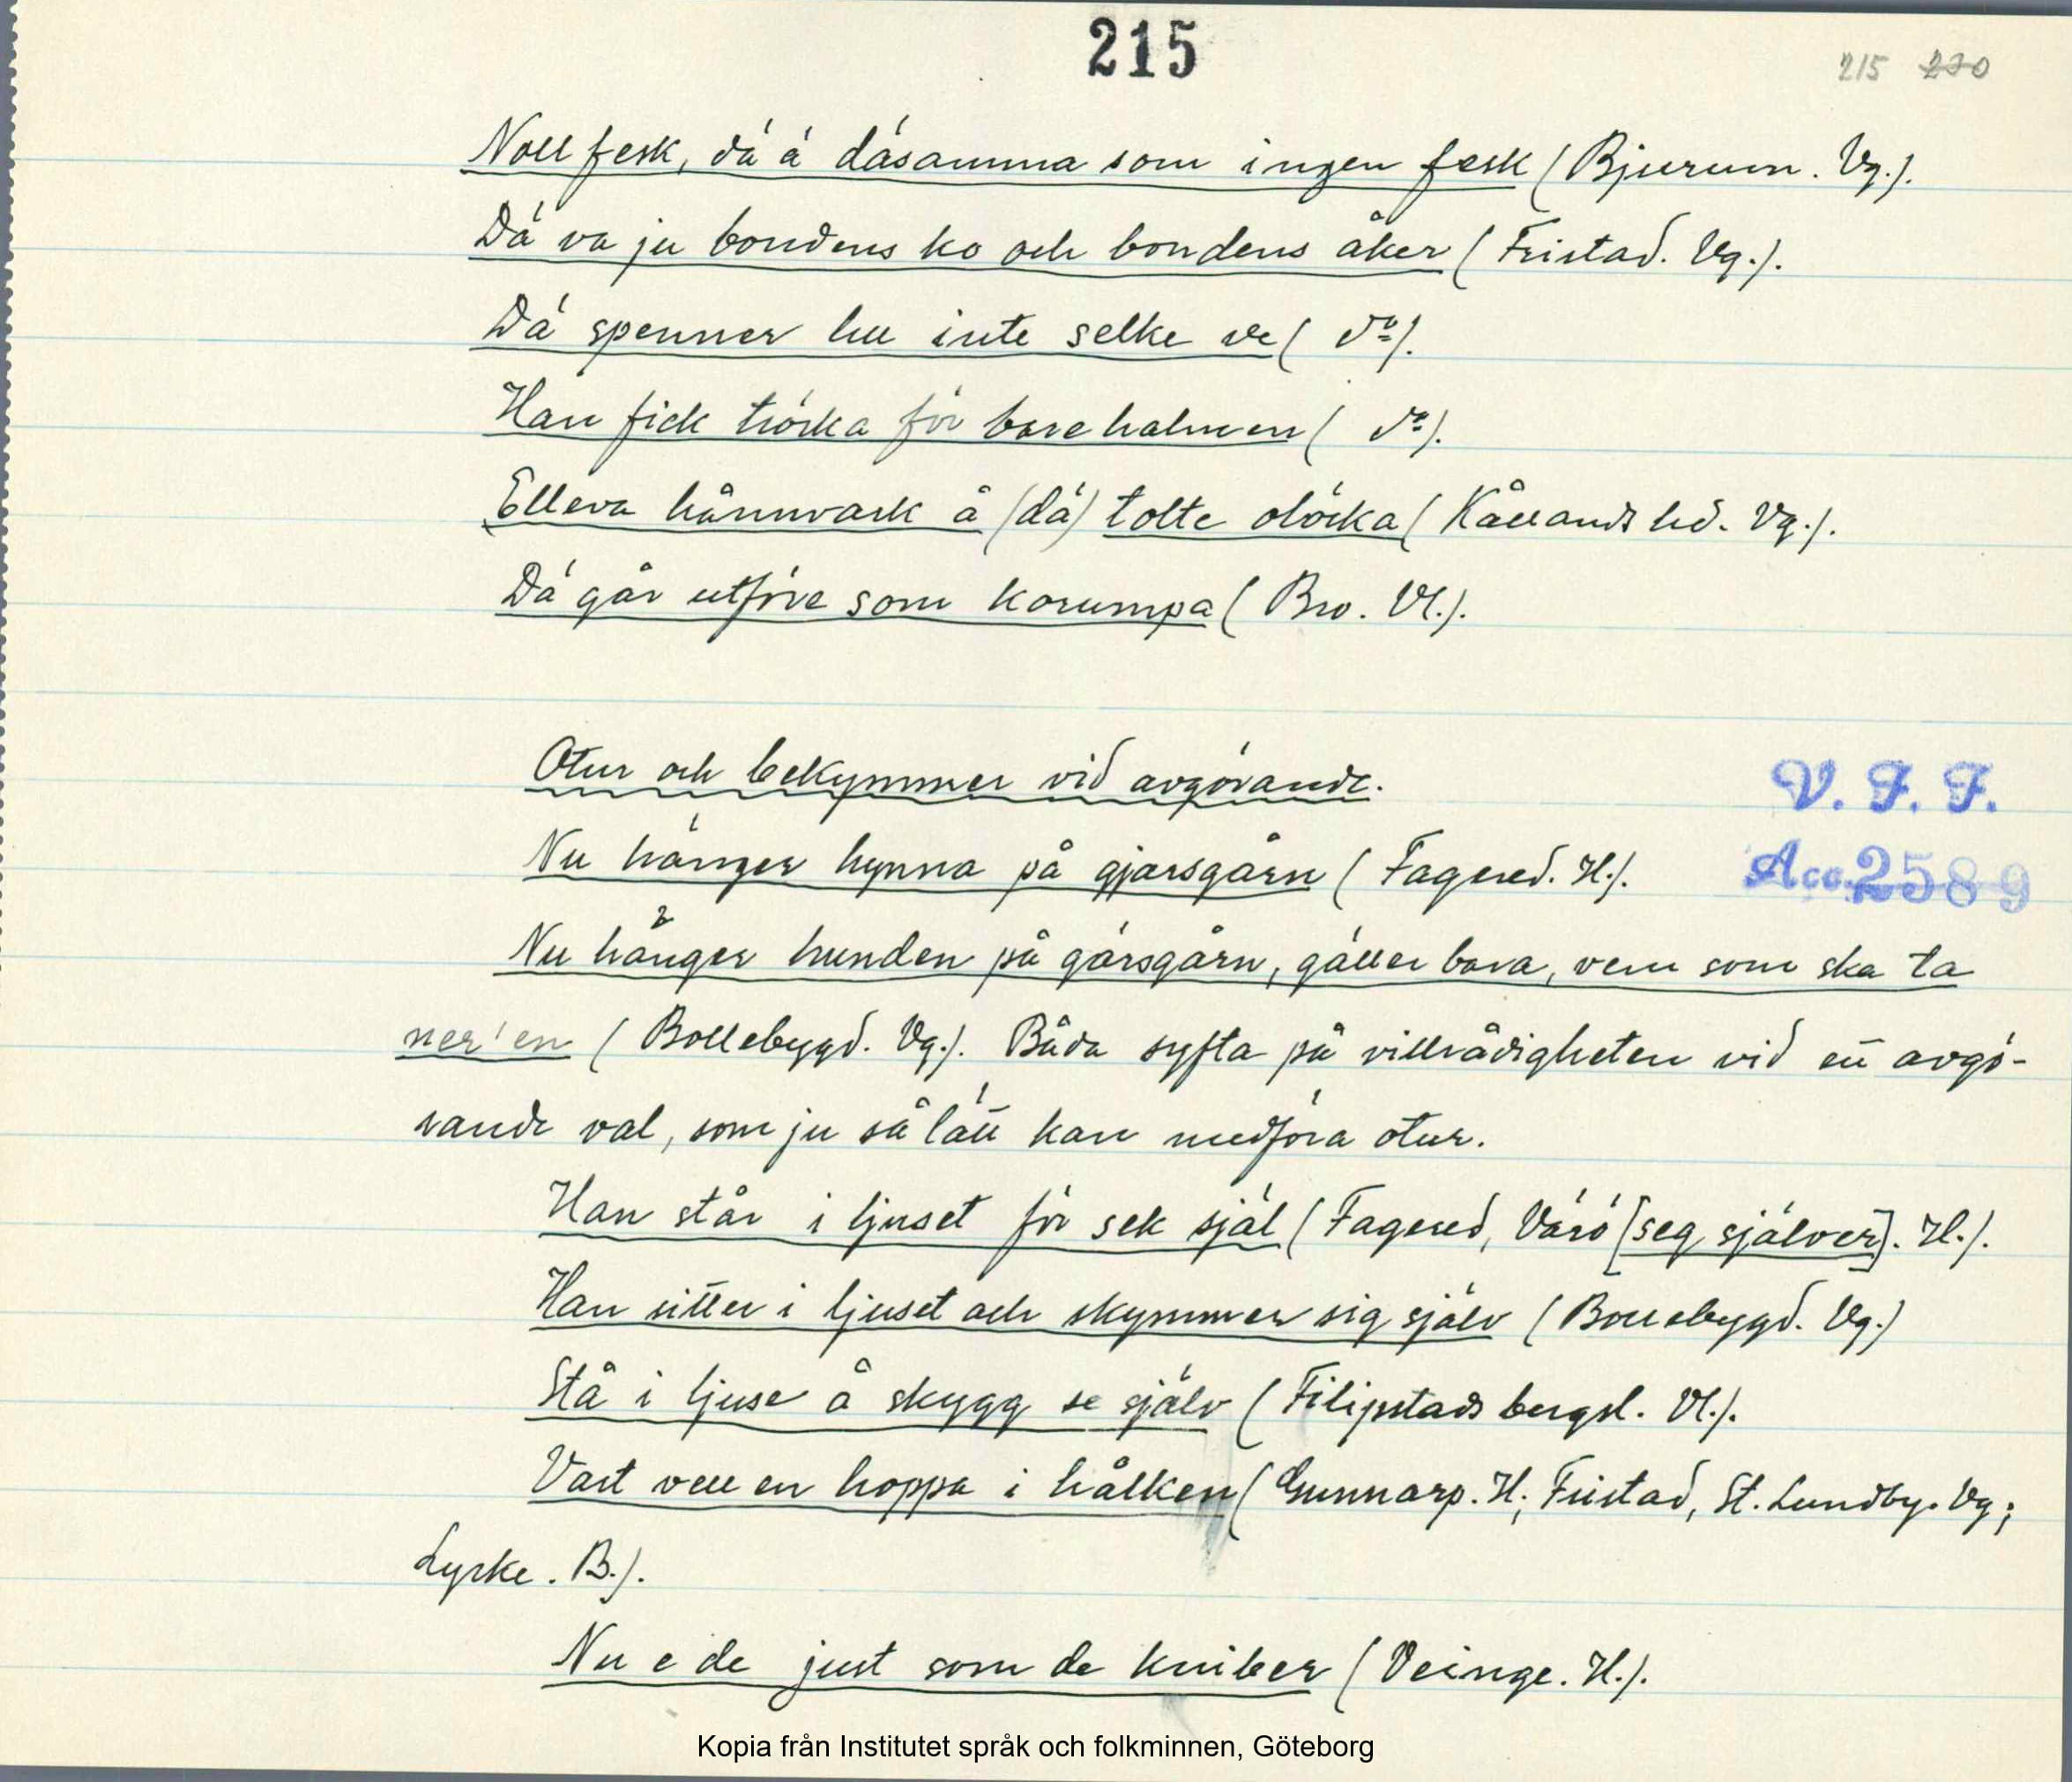 215
215 230
Noll fesk, dä ä däsamma som ingen fesk (Bjurum. Vg.).
Dä va ju bondens ko och bondens åker (Fristad. Vg.).
Dä spenner hu inte selke ve (do).
Han fick tröska för bare halmen (do).
Elleva hännvark å (dä) tolte olöcka (Kållands hd. Vg.).
Dä går utföre som korumpa (Bro. Vl.).
Otur och bekymmer vid avgörande.
V. F. F.
Nu hänger hynna på gjarsgårn (Fagered. H.).
Acc. 2589
Nu hänger hunden på gärsgårn, gäller bara, vem som ska ta
ner'en (Bollebygd. Vg.). Båda syfta på villrådigheten vid ett avgö-
rande val, som ju så lätt kan medföra otur.
Han står i ljuset för sek själ (Fagered, Värö [seg själver]. H.).
Han sitter i ljuset och skymmer sig själv (Bollebygd. Vg.)
Stå i ljuse å skygg se själv (Filipstads bergsl. Vl.).
Vart vell en hoppa i hålken (Gunnarp. H.; Fristad, St. Lundby. Vg.;
Lyrke. B.).
Nu e de just som de kniber (Veinge. H.).
Kopia från Institutet språk och folkminnen, Göteborg